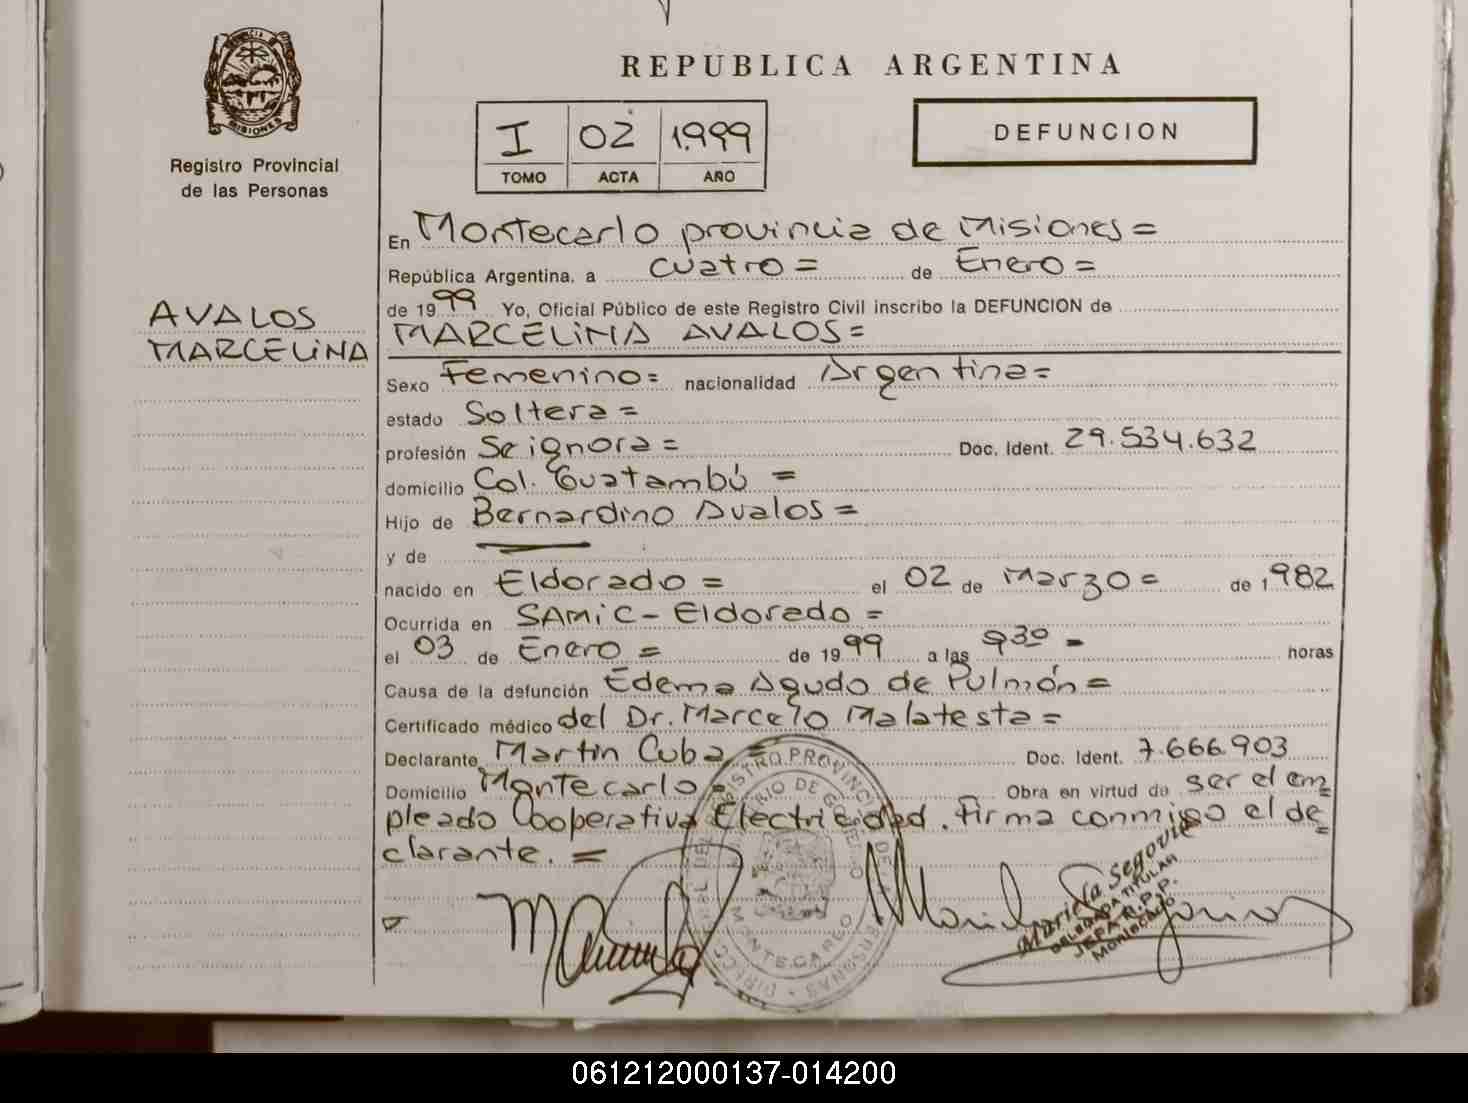 REPUBLICA ARGENTINA
PROVINCIA DE
MISIONES
Registro Provincial
de las Personas
I 02 1.999
TOMO ACTA AÑO
DEFUNCION
AVALOS
MARCELINA
En Montecarlo provincia de Misiones =
República Argentina, a cuatro = de Enero =
de 1999 Yo, Oficial Público de este Registro Civil inscribo la DEFUNCION de
MARCELINA AVALOS =
Sexo Femenino = nacionalidad Argentina =
estado Soltera =
profesión Seignora = Doc. Ident. 29.534.632
domicilio Col. Guatambú =
Hijo de Bernardino Avalos =
y de
nacido en Eldorado = el 02 de Marzo = de 1982
Ocurrida en SAMIC - Eldorado =
el 03 de Enero = de 1999 a las 930 = horas
Causa de la defunción Edema Agudo de Pulmón =
Certificado médico del Dr. Marcelo Malatesta =
Declarante Martin Cuba = Doc. Ident. 7.666.903
Domicilio Montecarlo = Obra en virtud de ser el em
pleado Cooperativa Electricidad. Firma conmigo el de
clarante. =
Mariela Segovia
DELEGADA TITULAR
JEFA R.P.P.
Montecarlo
061212000137-014200